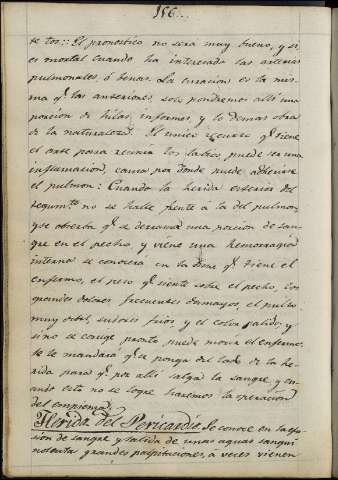 156...
te tos:: El pronostico no será muy bueno, y si
es mortal cuando ha interesado las arterias
pulmonales ó benas. La curacion es la mis-
ma q.e las anteriores, solo pondremos alli una
porcion de hilas, informes, y lo demas obra
de la naturaleza. El unico recurso q.e tiene
el arte para reunir los labios, puede ser una
inflamacion, causa por donde puede adherirse
el pulmon: Cuando la herida esterior del
tegum.to no se halle frente á la del pulmon,
que obserba q.e se derrama una porcion de san-
gre en el pecho, y viene una hemorragia
interna se conocerá en la q.e tiene el
enfermo, el peso q.e siente sobre el pecho, los
grandes dolores frecuentes desmayos, el pulso
muy debil, sudores frios, y el color palido, y
si no se acuge pronto puede morir el enfermo.
Se le mandará q.e se ponga del lado de la he-
rida para q.e por alli salga la sangre, y cu-
ando esto no se logre haremos la operacion
del empiema.
Herida del Pericardio Se conoce en la efu-
sion de sangre y salida de unas aguas sangui
nolenta grandes palpitaciones, a veces vienen